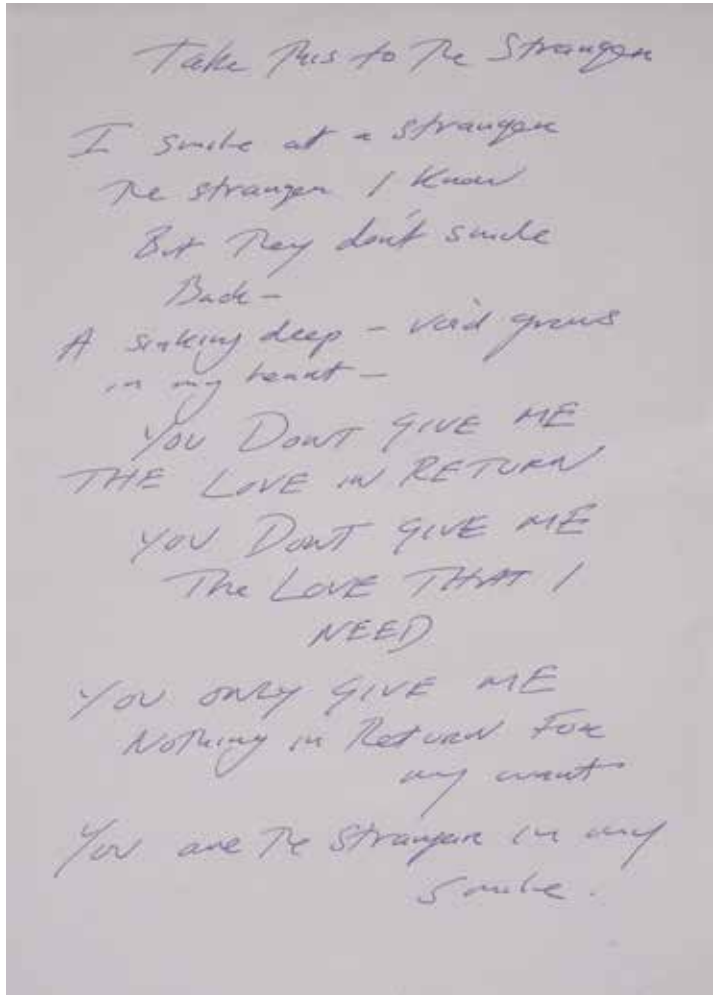 Take This to The Stranger
I smile at a stranger
The stranger I Know
But They don't smile
Back –
A sinking deep – void grows
in my heart –
YOU DONT GIVE ME
THE LOVE IN RETURN
YOU DONT GIVE ME
The LOVE THAT I
NEED
YOU ONLY GIVE ME
NOThing in RETURN FOR
my want
You are The Stranger in my
Smile.